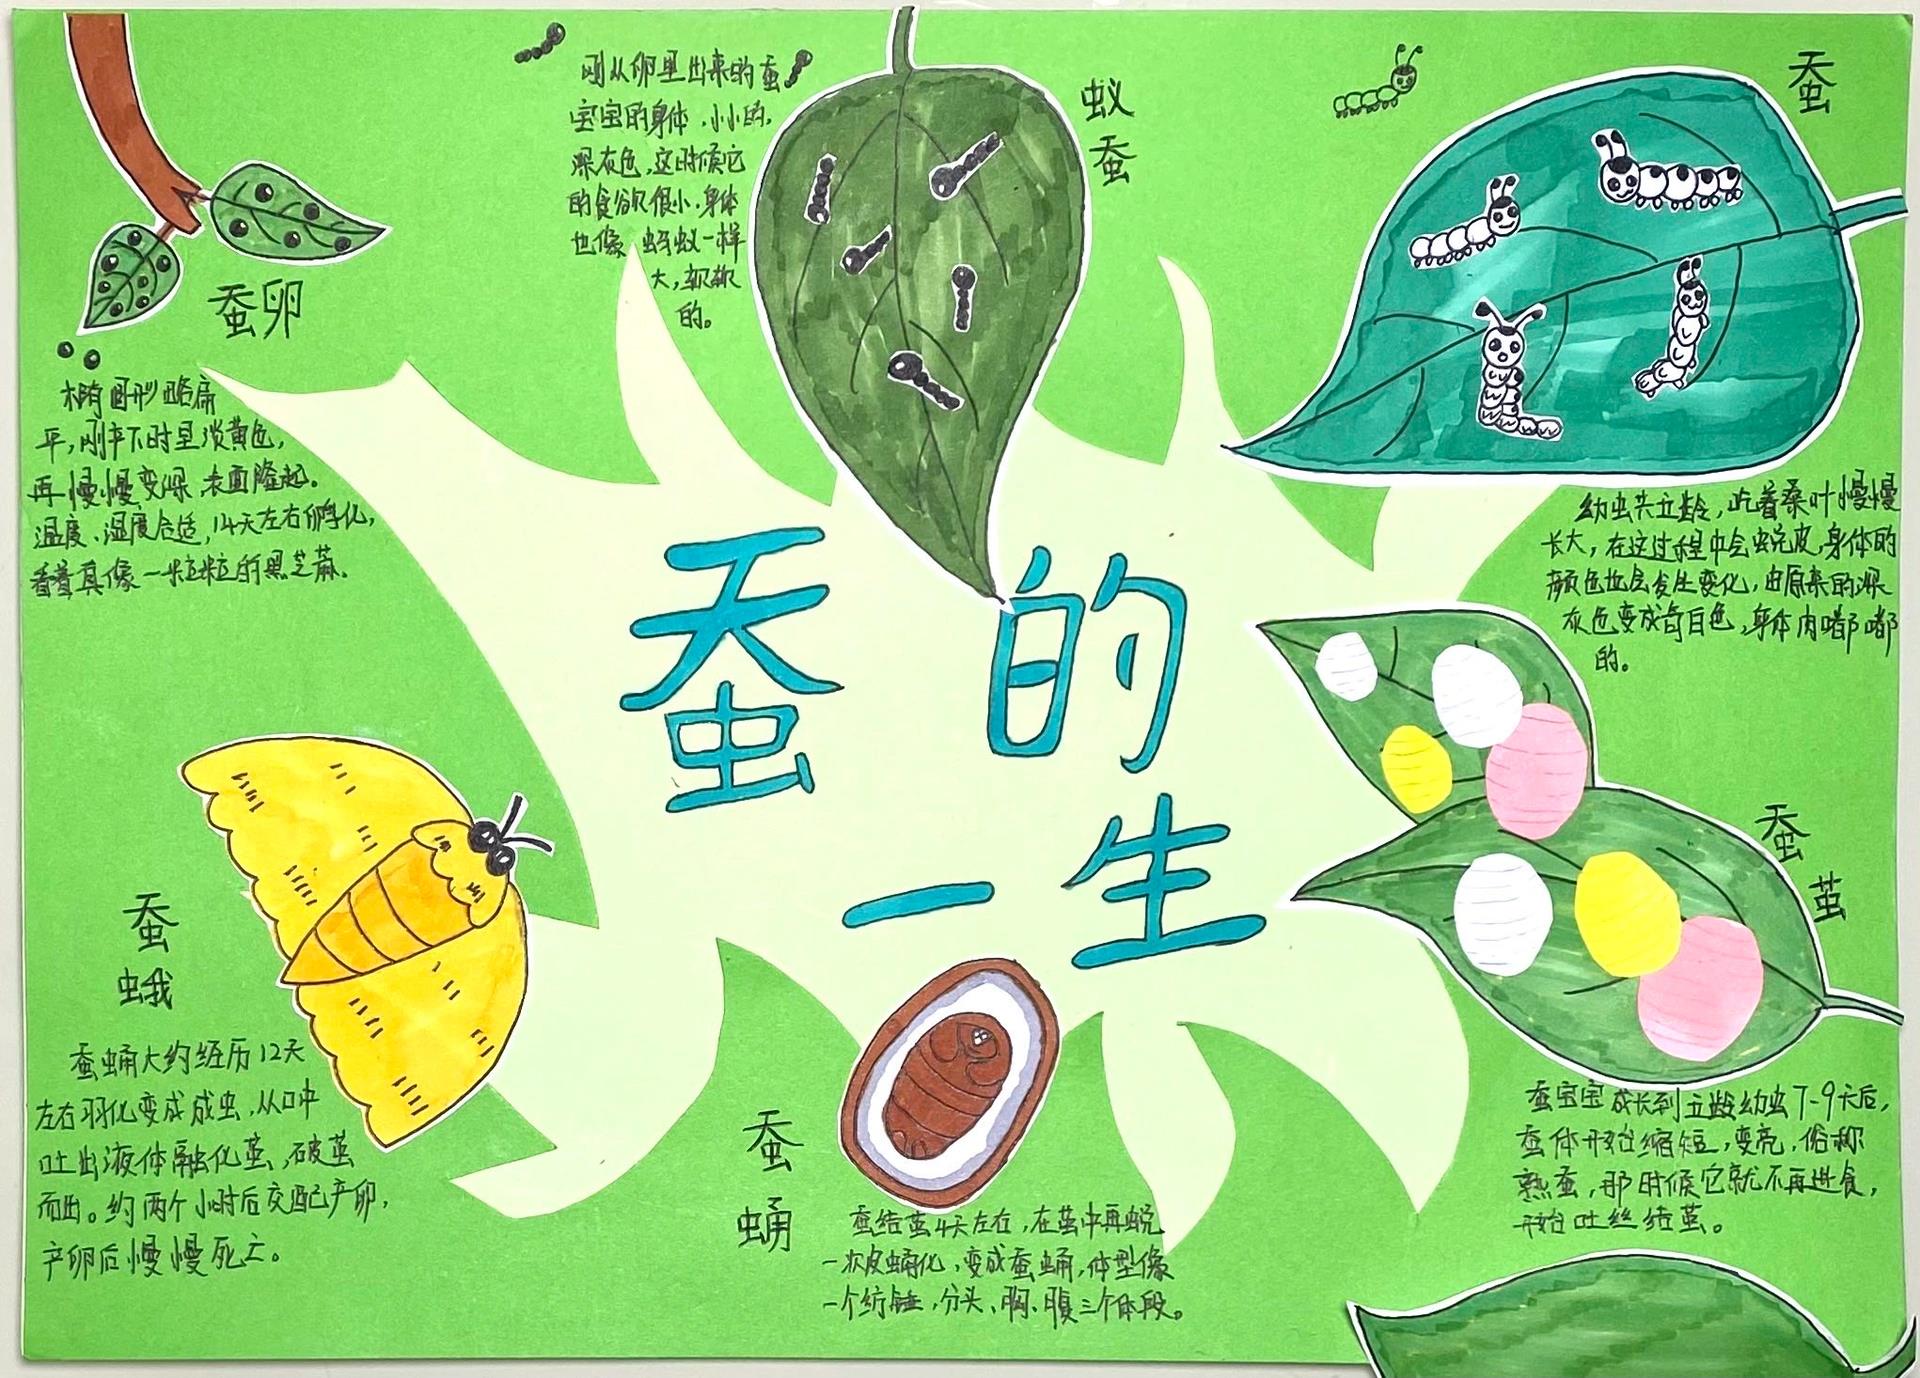 蚕的
一生
蚕卵
椭圆形略扁
平,刚产下时呈淡黄色,
再慢慢变深,表面隆起。
温度、湿度合适,14天左右孵化,
看着真像一粒粒的黑芝麻.
刚从卵里出来的蚕
宝宝的身体,小小的,
深灰色,这时候它
的食欲很小,身体
也像蚂蚁一样
大,软软
的。
蚁
蚕
蚕
幼虫共五龄,吃着桑叶慢慢
长大,在这过程中会蜕皮,身体的
颜色也会发生变化,由原来的深
灰色变成青白色,身体肉嘟嘟
的。
蚕
茧
蚕宝宝成长到五龄幼虫7-9天后,
蚕体开始缩短,变亮,俗称
熟蚕,那时候它就不再进食,
开始吐丝结茧。
蚕
蛹
蚕结茧4天左右,在茧中再蜕
一次皮蛹化,变成蚕蛹,体型像
一个纺锤,分头、胸、腹三个体段。
蚕
蛾
蚕蛹大约经历12天
左右羽化变成成虫,从口中
吐出液体融化茧,破茧
而出。约两个小时后交配产卵,
产卵后慢慢死亡。